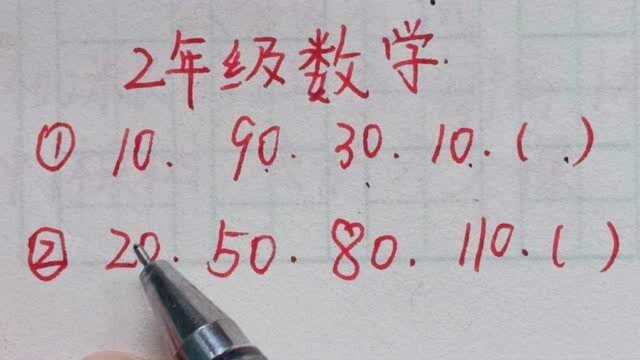 2年级数学
① 10. 90. 30. 10. ( )
② 20. 50. 80. 110. ( )